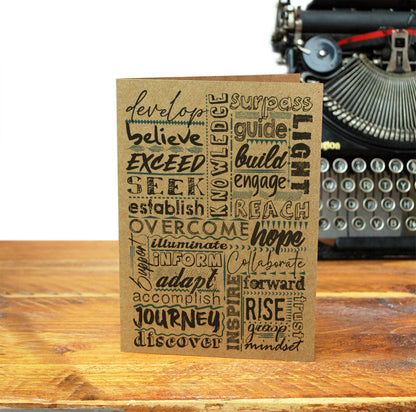 develop
believe
EXCEED
SEEK
establish
KNOWLEDGE
surpass
guide
build
engage
LIGHT
REACH
OVERCOME
hope
illuminate
Support
INFORM
Collaborate
adapt
accomplish
JOURNEY
discover
INSPIRE
forward
RISE
grasp
mindset
trust